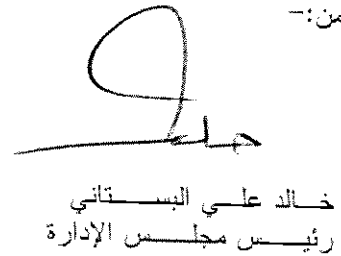 من:-
خالد علي البستاني
رئيس مجلس الإدارة